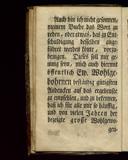 Auch bin ich nicht gesonnen,
meinem Buche das Wort zu
reden, oder etwas, das zu Ent-
schuldigung desselben ange-
führet werden könte, vorzu-
bringen. Dieses soll mir ge-
nung seyn, mich auch hiermit
öffentlich Ew. Wohlge-
bohrnen beständig günstigen
Andencken auf das ergebenste
zu empfehlen, und zu bekennen,
daß ich für alle mir so häuffig,
und von vielen Jahren her
bezeigte grosse Wohlgewo-
gen-